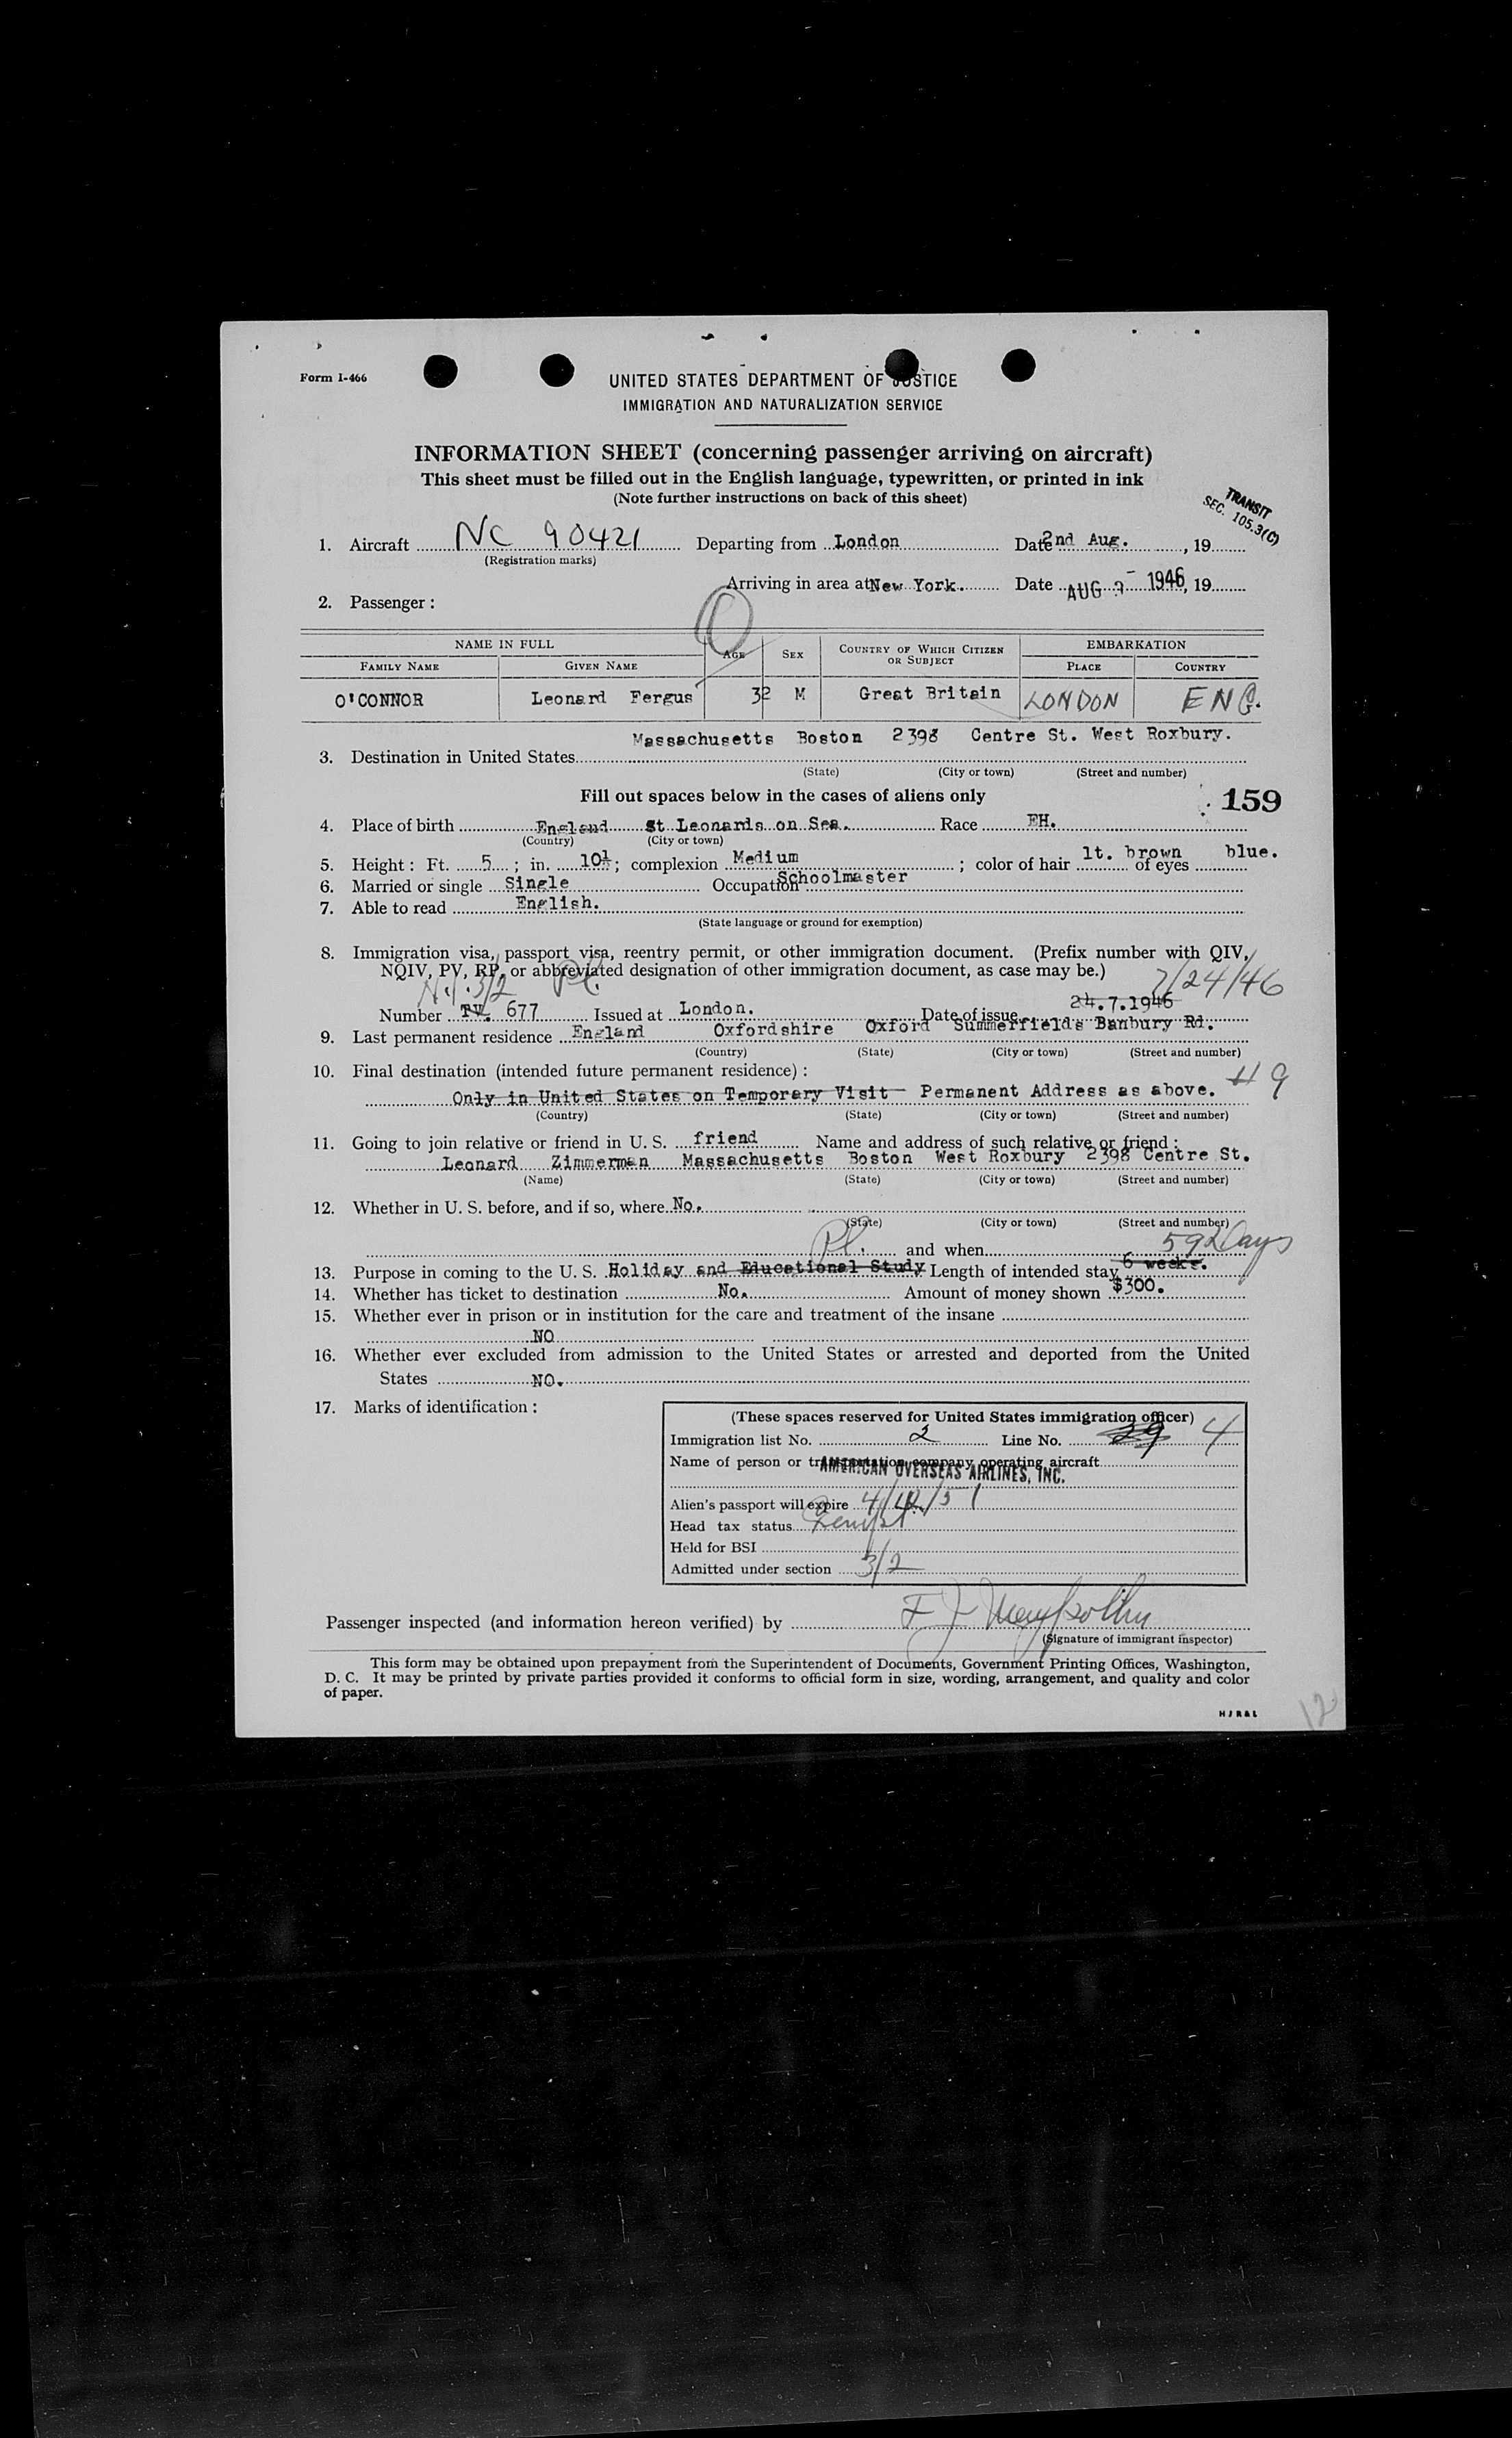 Form I-466
UNITED STATES DEPARTMENT OF JUSTICE
IMMIGRATION AND NATURALIZATION SERVICE
INFORMATION SHEET (concerning passenger arriving on aircraft)
This sheet must be filled out in the English language, typewritten, or printed in ink
(Note further instructions on back of this sheet)
TRANSIT
SEC. 105.3(C)
1. Aircraft NC 90421 Departing from London Date 2nd Aug. , 19
(Registration marks)
Arriving in area at New York. Date AUG 3 - 1946, 19
2. Passenger :
NAME IN FULL AGE SEX COUNTRY OF WHICH CITIZEN OR SUBJECT EMBARKATION
FAMILY NAME GIVEN NAME PLACE COUNTRY
O'CONNOR Leonard Fergus 32 M Great Britain LONDON ENG.
Massachusetts Boston 2398 Centre St. West Roxbury.
3. Destination in United States
(State) (City or town) (Street and number)
Fill out spaces below in the cases of aliens only
159
4. Place of birth England St Leonards on Sea. Race EH.
(Country) (City or town)
5. Height : Ft. 5 ; in. 10½ ; complexion Medium ; color of hair lt. brown of eyes blue.
6. Married or single Single Occupation Schoolmaster
7. Able to read English.
(State language or ground for exemption)
8. Immigration visa, passport visa, reentry permit, or other immigration document. (Prefix number with QIV,
NQIV, PV, RP, or abbreviated designation of other immigration document, as case may be.)
3/2 Pl. 7/24/46
Number 677 Issued at London. Date of issue 24.7.1946
9. Last permanent residence England Oxfordshire Oxford Summerfields Banbury Rd.
(Country) (State) (City or town) (Street and number)
10. Final destination (intended future permanent residence) :
Only in United States on Temporary Visit - Permanent Address as above.
(Country) (State) (City or town) (Street and number)
11. Going to join relative or friend in U. S. friend Name and address of such relative or friend :
Leonard Zimmerman Massachusetts Boston West Roxbury 2398 Centre St.
(Name) (State) (City or town) (Street and number)
12. Whether in U. S. before, and if so, where No.
(State) (City or town) (Street and number)
Pl. and when 59 Days
13. Purpose in coming to the U. S. Holiday and Educational Study Length of intended stay 6 weeks.
14. Whether has ticket to destination No. Amount of money shown $300.
15. Whether ever in prison or in institution for the care and treatment of the insane
NO
16. Whether ever excluded from admission to the United States or arrested and deported from the United
States NO.
17. Marks of identification :
(These spaces reserved for United States immigration officer)
Immigration list No. 2 Line No. 29 4
Name of person or transportation company operating aircraft
AMERICAN OVERSEAS AIRLINES, INC.
Alien's passport will expire 4/12/51
Head tax status
Held for BSI
Admitted under section 3/2
Passenger inspected (and information hereon verified) by
(Signature of immigrant inspector)
This form may be obtained upon prepayment from the Superintendent of Documents, Government Printing Offices, Washington,
D. C. It may be printed by private parties provided it conforms to official form in size, wording, arrangement, and quality and color
of paper.
H J R & L
12